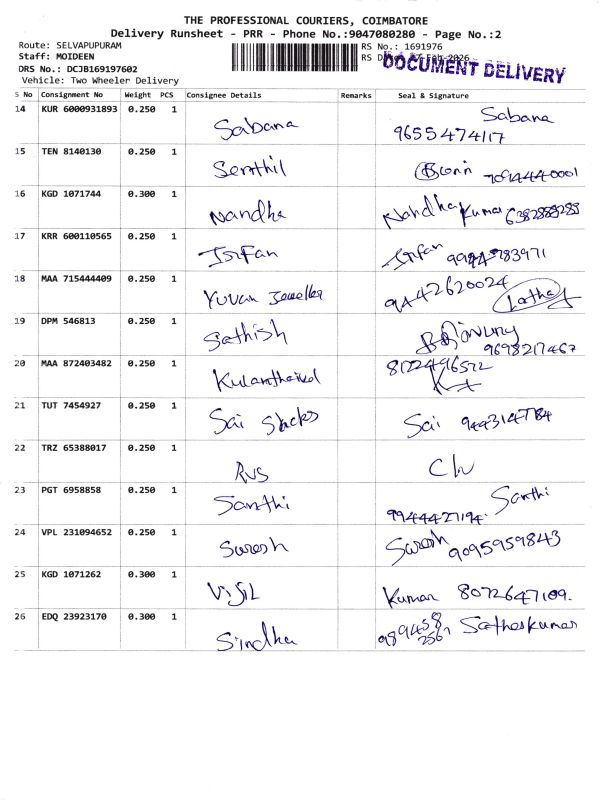 THE PROFESSIONAL COURIERS, COIMBATORE
Delivery Runsheet - PRR - Phone No.:9047080280 - Page No.:2
Route: SELVAPUPURAM RS No.: 1691976
Staff: MOIDEEN RS
DOCUMENT DELIVERY
DRS No.: DCJB169197602
Vehicle: Two Wheeler Delivery
S No Consignment No Weight PCS Consignee Details Remarks Seal & Signature
14 KUR 6000931893 0.250 1 Sabana Sabana
9655474117
15 TEN 8140130 0.250 1 Senthil
16 KGD 1071744 0.300 1 Nandha Nandha Kumar 6382889289
17 KRR 600110565 0.250 1 Irfan Irfan 9994783971
18 MAA 715444409 0.250 1 Yuvan Jeweller 9442620024
Latha
19 DPM 546813 0.250 1 Sathish
9698217467
20 MAA 872403482 0.250 1 8122496572
21 TUT 7454927 0.250 1 Sai Sai 9443147784
22 TRZ 65388017 0.250 1 RVS
23 PGT 6958858 0.250 1 Santhi Santhi
9944427194.
24 VPL 231094652 0.250 1 Suresh Suresh 9095959843
25 KGD 1071262 0.300 1 Vijil Kumar 8072647109.
26 EDQ 23923170 0.300 1 Sindha 989458 Satheskumar
2567